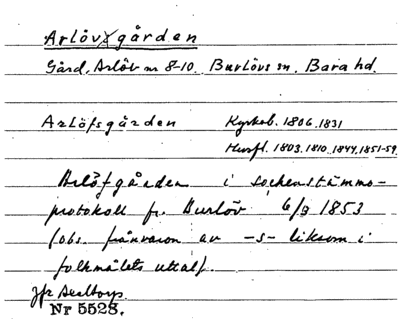 Arlövgården
Gård, Arlöv nr 8-10. Burlövs sn, Bara hd.
Arlöfsgården Kyrkob. 1806, 1831
Husfl. 1803, 1810, 1844, 1851-59
Arlöfgården i sockenstämmo-
protokoll fr. Burlöv 6/9 1853
(obs. frånvaron av -s- liksom i
folkmålets uttal).
Jfr
Nr 5528.